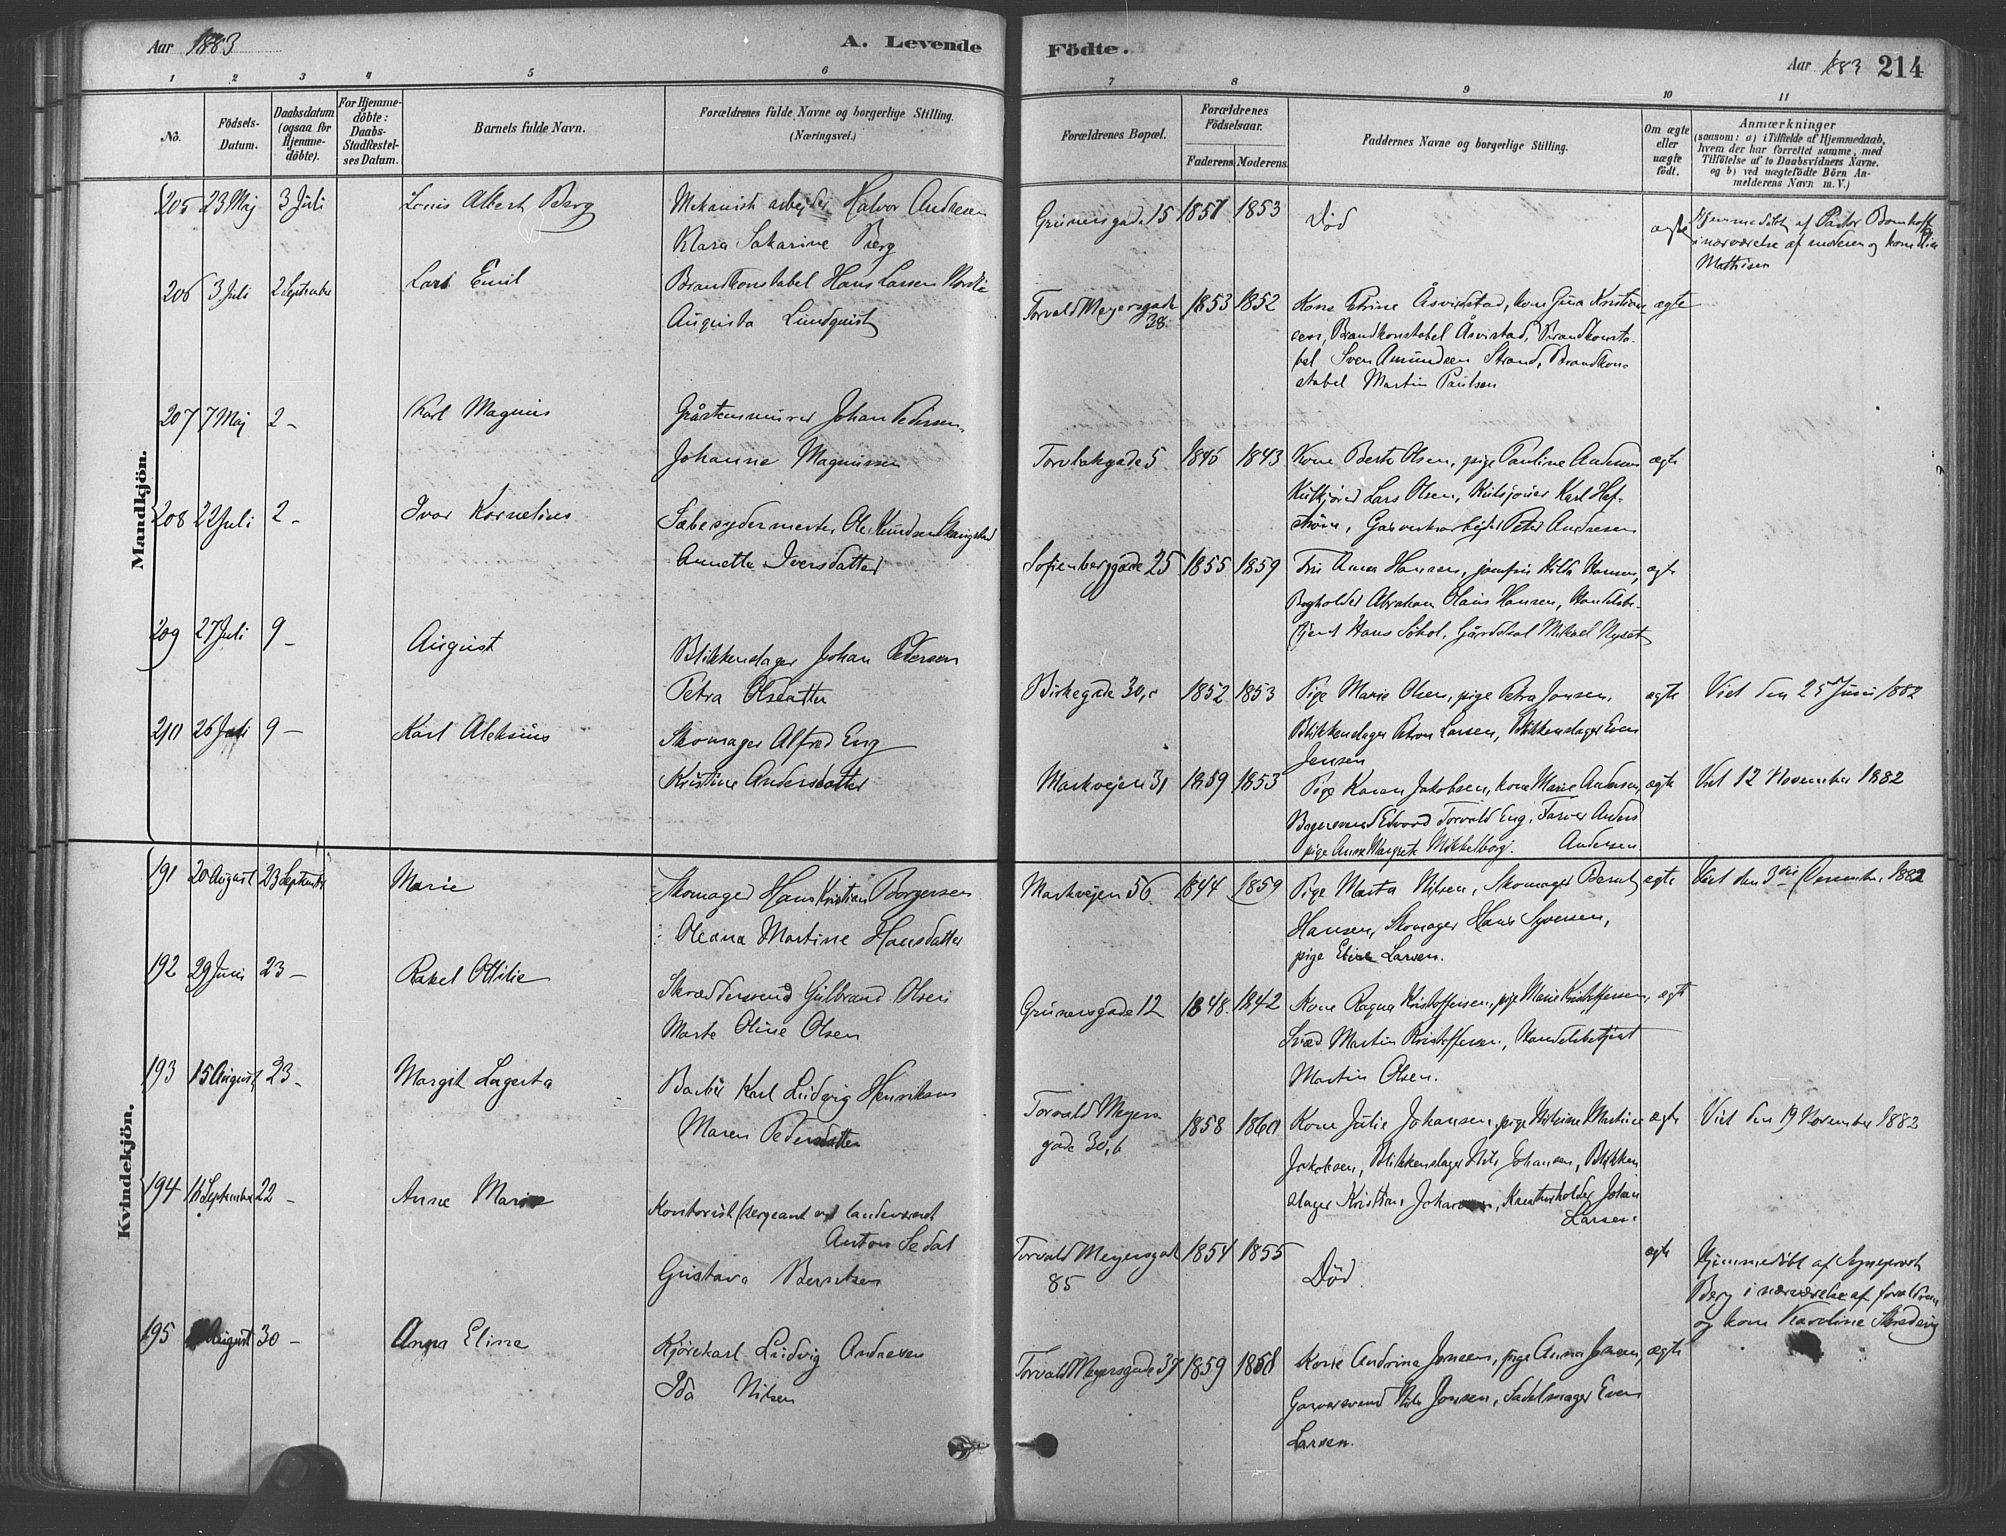 Aar 1883
A. Levende Födte.
Aar 1883 214
1 2 3 4 5 6 7 8 9 10 11
No.
Födsels-Datum.
Daabsdatum (ogsaa for Hjemme-döbte).
For Hjemme-döbte: Daabs-Stadfæstel-ses Datum.
Barnets fulde Navn.
Forældrenes fulde Navne og borgerlige Stilling.
(Næringsvei.)
Forældrenes Bopæl.
Forældrenes Födselsaar.
Faderens. Moderens.
Faddernes Navne og borgerlige Stilling.
Om ægte eller uægte födt.
Anmærkninger
(saasom: a) i Tilfælde af Hjemmedaab,
hvem der har forrettet samme, med
Tilföielse af to Daabsvidners Navne,
og b) ved uægtefödte Börn An-
melderens Navn m. V.)
Mandkjön.
205 23 Maj 3 Juli Louis Albert Berg Mekanisk arbejder Halvor Andresen
Klara Sakarine Berg
Grünersgade 15 1857 1853 Död ægte
Hjemmedöbt af Pastor Bomhoff
i nærværelse af moderen og kone
Mathisen
206 3 Juli 2 September Lars Emil Brandkonstabel Hans Larsen
Augusta Lundquist
Torvald Meyersgade 38. 1853 1852 Kone Petrine Åsvidstad, kone Gina Kristian ægte
sen, Brandkonstabel Åsvistad, Brandkonsta-
bel Sven Amundsen Strand, Brandkon-
stabel Martin Paulsen
207 7 Maj 2 - Karl Magnus Gråstensmurer Johan Pedersen
Johanne Magnussen
Torvbakgade 5 1846 1843 Kone Berte Olsen, pige Pauline Andersen ægte
Lars Olsen, Karl Haf-
ström, Gasverksarbejder Peter Andresen
208 22 Juli 2 - Ivar Kornelius Sæbesydermester Ole Knudsen
Annette Iversdatter
Sofienberggade 25 1855 1859 Fru Anna Hansen, jomfru Hilda Hansen, ægte
Bogholder Abraham Olaus Hansen, Handelsbe-
tjent Hans Sökol, Mikael
209 27 Juli 9 - August Blikkenslager Johan Pedersen
Petra Olsdatter
Birkegade 30,c 1852 1853 Pige Marie Olsen, pige Petra Jonsen, ægte Viet den 25 Juni 1882
Blikkenslager Larsen, Blikkenslager Even
Jensen
210 26 Juli 9 - Karl Aleksius Skomager Alfred Eng
Kristine Andersdatter
Markvejen 31 1859 1853 Pige Karen Jakobsen, kone Marie Andersen, ægte Viet 12 November 1882
Bagersvend Edvard Torvald Eng, Farver Anders
pige Anne Margrete Mikkelborg. Andersen
Kvindekjön.
191 20 August 23 September Marie Skomager Hans Kristian Borgersen
Oleana Martine Hansdatter
Markvejen 56 1844 1859 Pige Marta Nilsen, Skomager Bernt ægte Viet den 3die December 1882
Hansen, Skomager Hans Syversen,
pige Eline Larsen.
192 29 Juni 23 - Rakel Ottilie Skræddersvend Gulbrand Olsen
Marte Oline Olsen
Grünersgade 12 1848. 1842 Kone Ragna Kristoffersen, pige Marie Kristoffersen, ægte
Martin Kristoffersen, Handelsbetjent
Martin Olsen.
193 15 August 23 - Margit Lagerta Barber Karl Ludvig Henriksen
Maren Pedersdatter
Torvald Meyers gade 30,b 1858 1860 Kone Julie Johansen, pige Vilhelmine Martine ægte Viet den 19 November 1882
Jakobsen, Blikkenslager Nils Johansen, Blikken
slager Kristian Johansen, Johan
Larsen.
194 11 September 22 - Anne Marie Kontorist (sergeant ved landværnet
Anton Sedal
Gustava Berntsen
Torvald Meyersgade 85 1854 1855 Död. ægte
Hjemmedöbt af Sogneprest
Berg i nærværelse af forældrene
og kone Karoline
195 August 30 - Anna Eline Kjörekarl Ludvig Andresen
Ida Nilsen
Torvald Meyersgade 37 1859 1858 Kone Andrine Jonsen, pige Anna Jonsen, ægte
Garversvend Nils Jonsen, Sadelmager Even
Larsen.